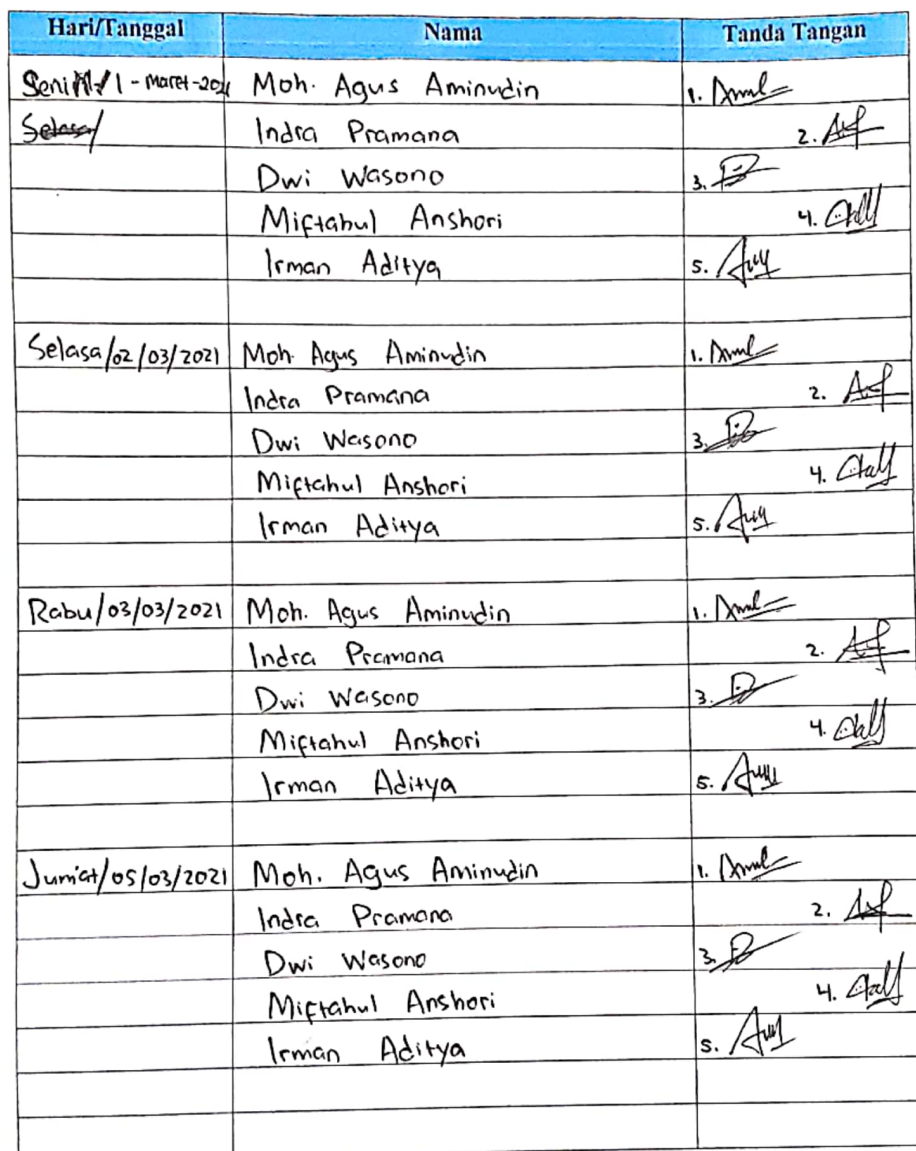 Hari/Tanggal Nama Tanda Tangan
Senin/1-Maret-2021 Moh. Agus Aminudin 1.
Selasa/ Indra Pramana 2.
Dwi Wasono 3.
Miftahul Anshori 4.
Irman Aditya 5.
Selasa/02/03/2021 Moh Agus Aminudin 1.
Indra Pramana 2.
Dwi Wasono 3.
Miftahul Anshori 4.
Irman Aditya 5.
Rabu/03/03/2021 Moh. Agus Aminudin 1.
Indra Pramana 2.
Dwi Wasono 3.
Miftahul Anshori 4.
Irman Aditya 5.
Jum'at/05/03/2021 Moh. Agus Aminudin 1.
Indra Pramana 2.
Dwi Wasono 3.
Miftahul Anshori 4.
Irman Aditya 5.